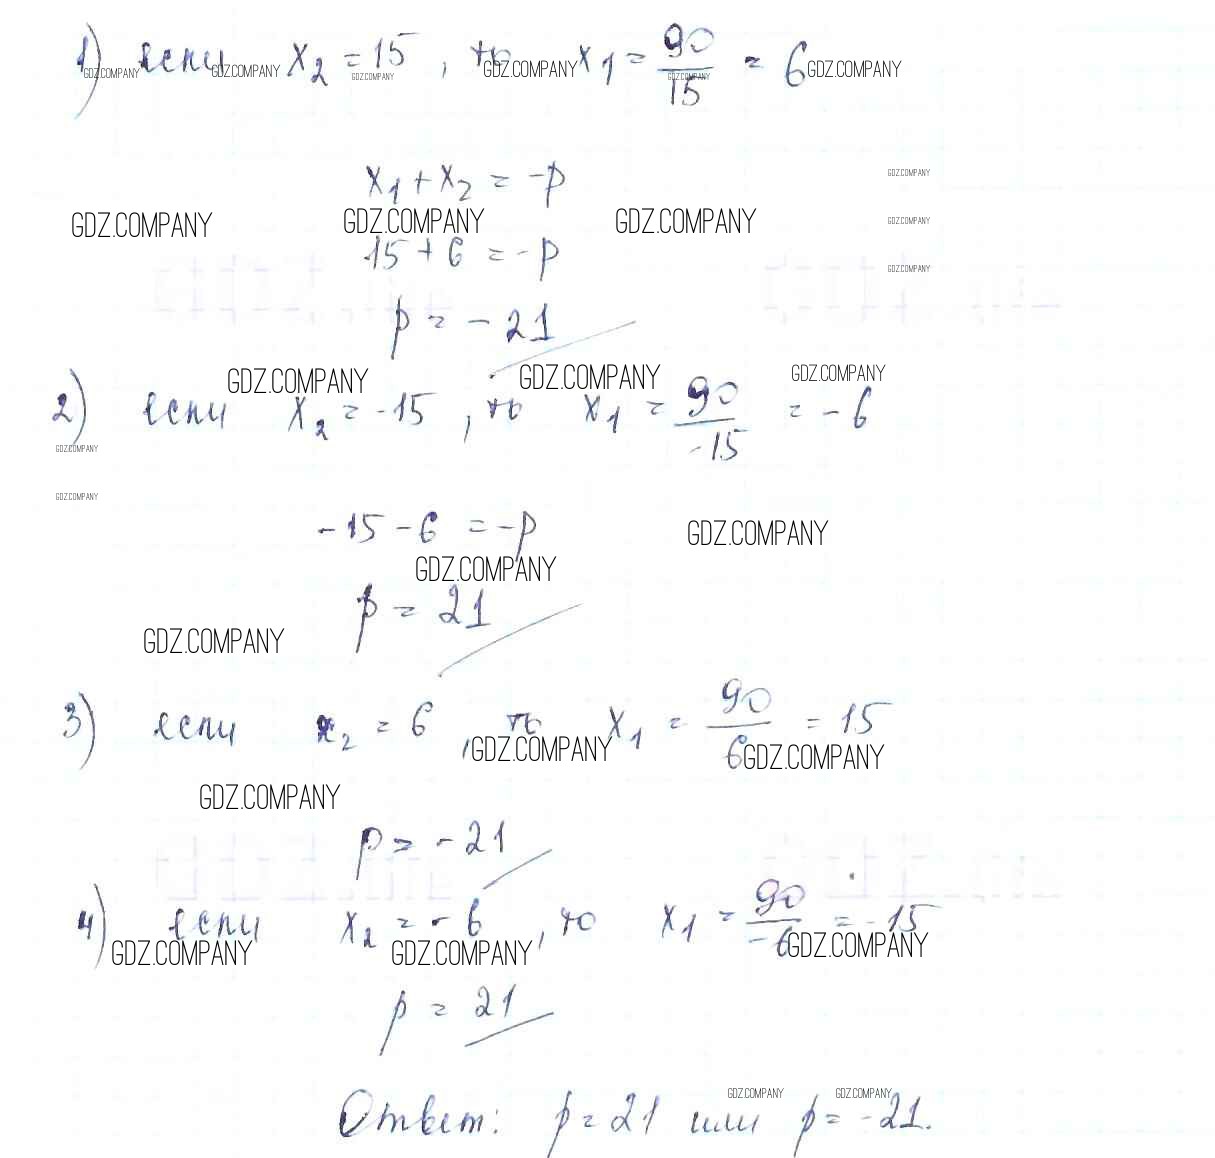 1) если x₂ = 15, то x₁ = 90/15 = 6
GDZ.COMPANY GDZ.COMPANY GDZ.COMPANY GDZ.COMPANY GDZ.COMPANY GDZ.COMPANY
x₁ + x₂ = -p
GDZ.COMPANY
GDZ.COMPANY GDZ.COMPANY GDZ.COMPANY GDZ.COMPANY
15 + 6 = -p
GDZ.COMPANY
p = -21
GDZ.COMPANY GDZ.COMPANY GDZ.COMPANY
2) если x₂ = -15, то x₁ = 90/-15 = -6
GDZ.COMPANY
GDZ.COMPANY
-15 - 6 = -p
GDZ.COMPANY
GDZ.COMPANY
p = 21
GDZ.COMPANY
3) если x₂ = 6, то x₁ = 90/6 = 15
GDZ.COMPANY GDZ.COMPANY
GDZ.COMPANY
p = -21
4) если x₂ = -6, то x₁ = 90/-6 = -15
GDZ.COMPANY GDZ.COMPANY GDZ.COMPANY
p = 21
GDZ.COMPANY GDZ.COMPANY
Ответ: p = 21 или p = -21.